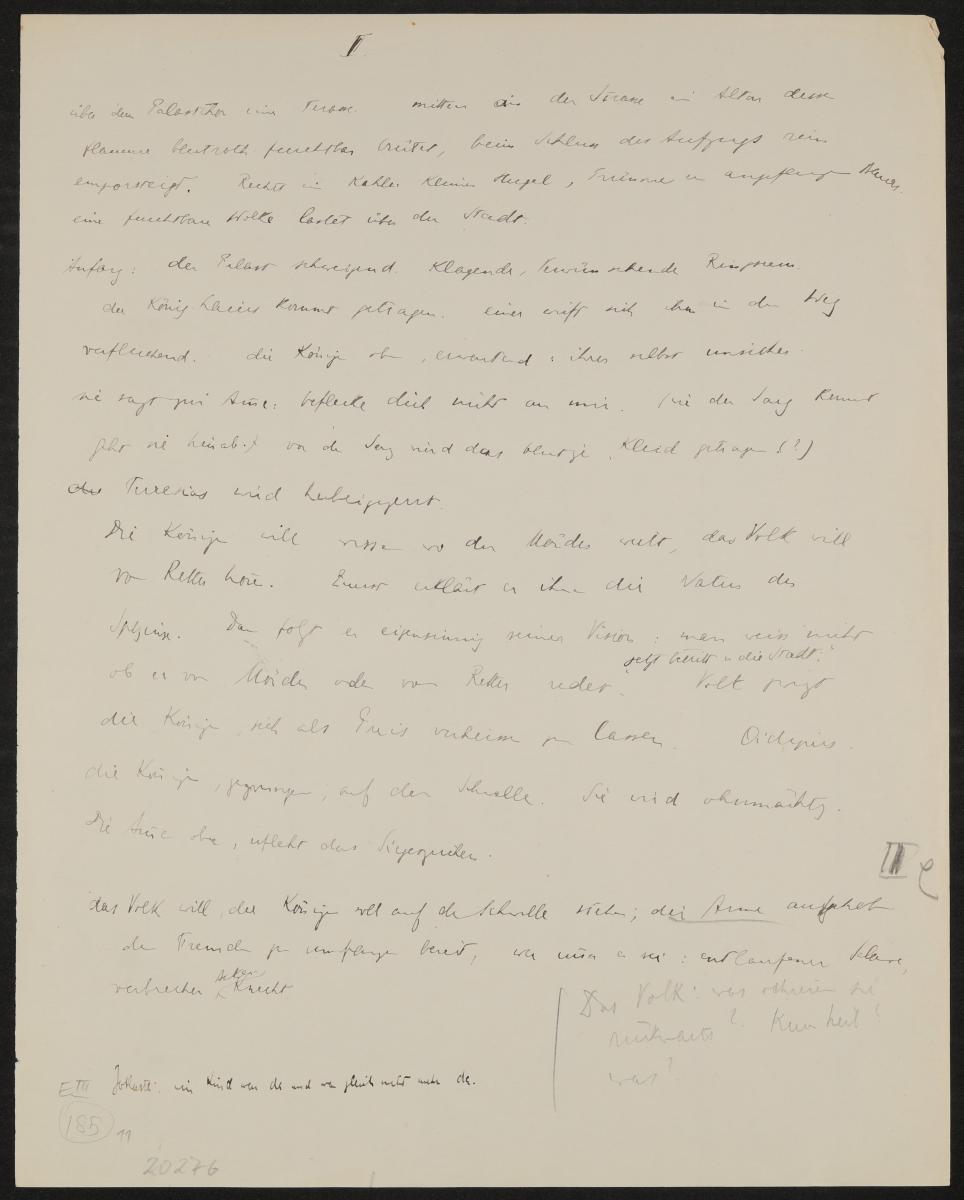 II
über dem Palastthor eine Terrasse. mitten in der Strasse ein Altar dessen
flamme blutroth furchtbar brütet, beim Schluss des Aufzugs rein
emporsteigt. Rechts ein Kahler kleiner Hügel,
eine furchtbare Wolke lastet über der Stadt.
Anfang: der Palast schweigend. Klagende, verwünschende
der König Laius kommt getragen. einer wirft sich ihm in den Weg
verfluchend. die Königin oben, erwartend: ihrer selbst unsicher.
sie sagt zur Amme: beflecke dich nicht an mir. (wie der Sarg kommt
geht sie hinab.) vor dem Sarg wird das blutige Kleid getragen (?)
Teiresias wird herbeigezerrt.
Die Königin will wissen wo der Mörder weilt, das Volk will
vom Retter hören. Zuerst erklärt er ihnen die Natur der
Sphinx. Dann folgt er eigensinnig seiner Vision: man weiss nicht
jetzt betritt er die Stadt!
ob er vom Mörder oder vom Retter redet. Volk zwingt
die Königin, sich als Preis verheissen zu lassen. Oidipus.
die Königin, gezwungen, auf der Schwelle. Sie wird ohnmächtig.
Die Amme oben, erfleht das Siegeszeichen.
III e
das Volk will, die Königin soll auf der Schwelle stehen; die Amme
den Fremden zu empfangen bereit, wer immer er sei: entlaufener Sklave,
verbrecher Knecht
Das Volk: was schreien sie
rückwärts? Kreon heil!
was?
E III Jokaste: ein Kind war da und war gleich nicht mehr da.
185
11
20276